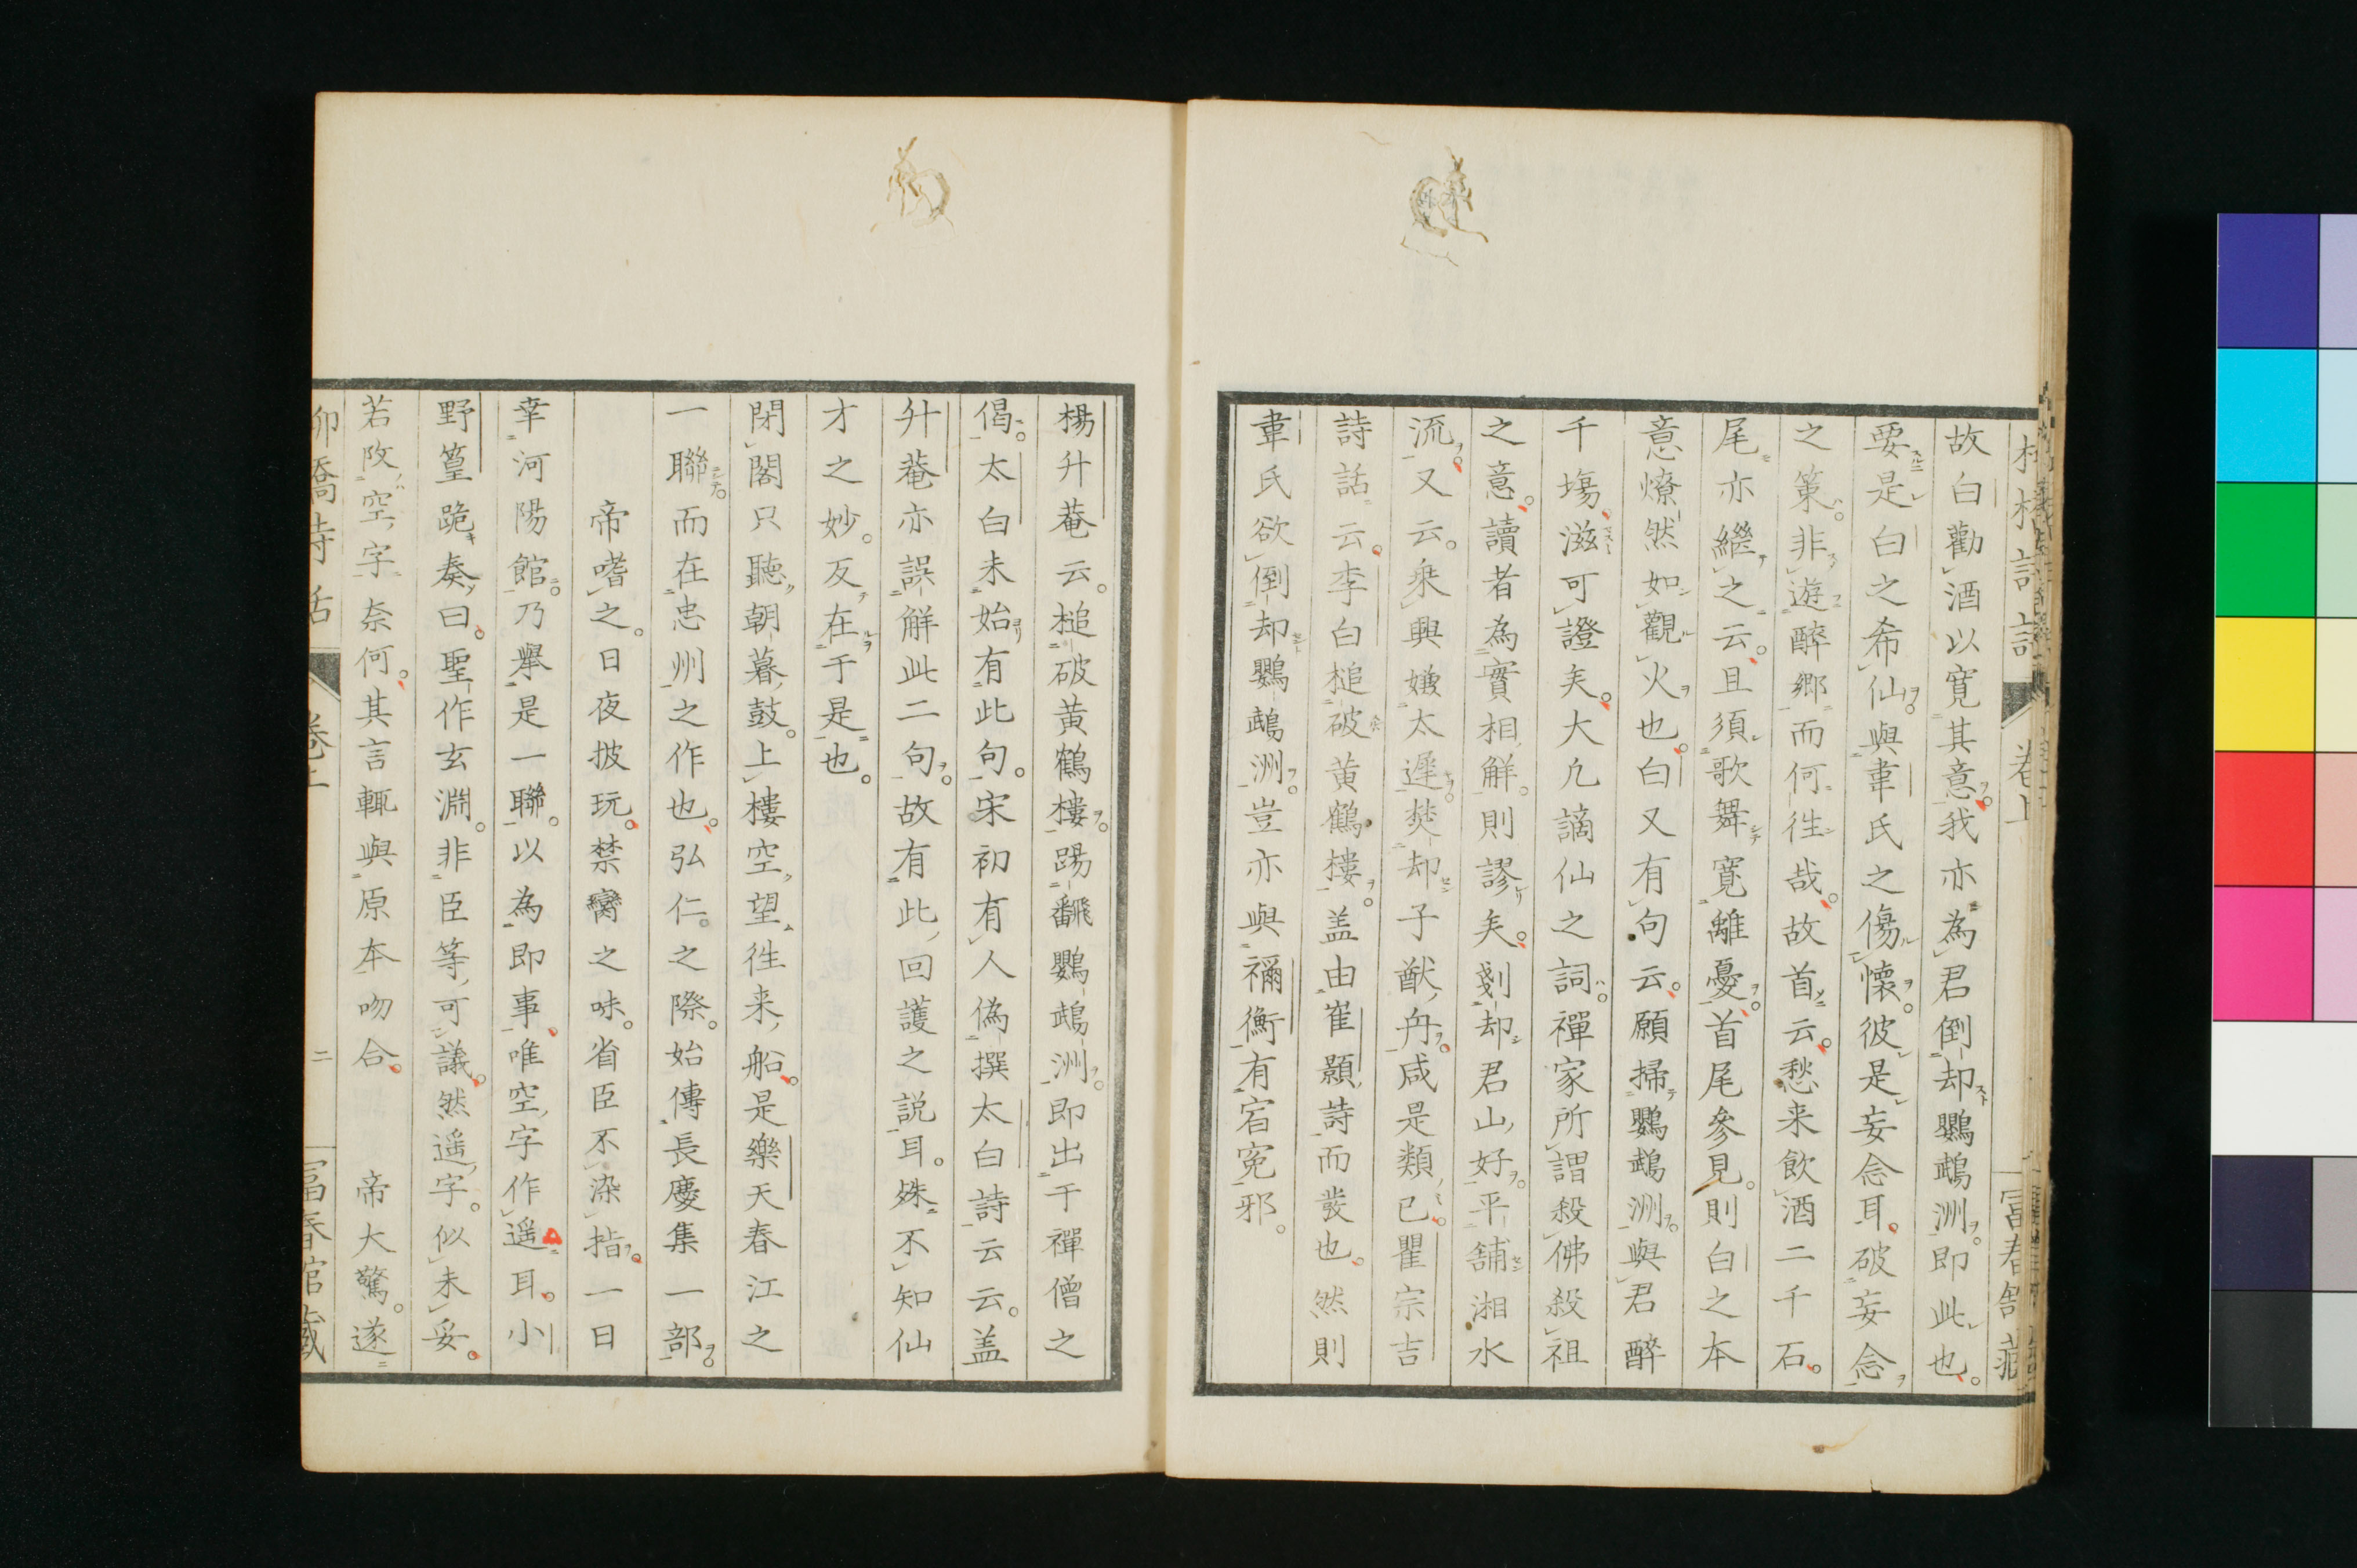 故白勸酒以寛其意。我亦為君倒却鸚鵡洲。即此也。
要是白之希仙。與韋氏之傷懷。彼是妄念耳。破妄念
之策。非遊醉郷而何徃哉。故首云。愁来飲酒二千石。
尾亦繼之云。且須歌舞寛離憂。首尾參見。則白之本
意燎然如觀火也。白又有句云。願掃鸚鵡洲。與君醉
千塲。滋可證矣。大凢謫仙之詞。禪家所謂殺佛殺祖
之意。讀者為實相解。則謬矣。剗却君山好。平舗湘水
流。又云。乗興嫌太遲。焚却子猷舟。咸是類已。瞿宗吉
詩話云。李白槌破黄鶴樓。盖由崔顥詩而發也。然則
韋氏欲倒却鸚鵡洲。豈亦與禰衡有宿寃邪。
卷上
冨春館蔵
楊升菴云。槌破黄鶴樓。踢飜鸚鵡洲。即出于禪僧之
偈。太白未始有此句。宋初有人偽撰太白詩云云。盖
升菴亦誤解此二句。故有此回護之説耳。殊不知仙
才之妙。反在于是也。
閉閣只聽朝暮鼓。上樓空望徃来船。是樂天春江之
一聯。而在忠州之作也。弘仁之際。始傳長慶集一部。
帝嗜之。日夜披玩。禁臠之味。省臣不染指。一日
幸河陽館。乃擧是一聯。以為即事。唯空字作遥耳。小
野篁跪奏曰。聖作玄淵。非臣等可議。然遥字。似未妥。
若改空字奈何。其言輒與原本吻合。 帝大驚。遂
詩話
卷上
二
冨春館蔵